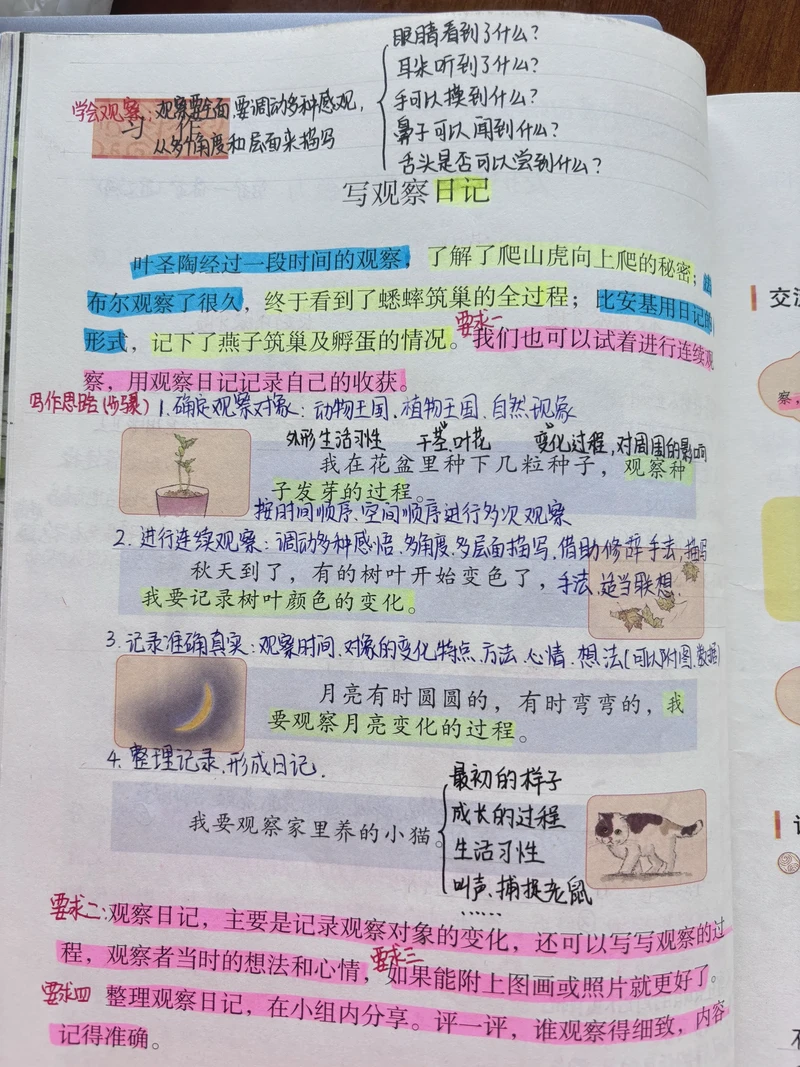 眼睛看到了什么?
耳朵听到了什么?
手可以摸到什么?
鼻子可以闻到什么?
舌头是否可以尝到什么?
学会观察:观察要全面,要调动多种感观,
从多角度和层面来描写
习 作
写观察日记
叶圣陶经过一段时间的观察,了解了爬山虎向上爬的秘密;法
布尔观察了很久,终于看到了蟋蟀筑巢的全过程;比安基用日记的
形式,记下了燕子筑巢及孵蛋的情况。要求一我们也可以试着进行连续观
察,用观察日记记录自己的收获。
写作思路(步骤) 1.确定观察对象:动物王国、植物王国、自然现象
外形生活习性 干茎、叶花 变化过程,对周围的影响
我在花盆里种下几粒种子,观察种
子发芽的过程。
按时间顺序、空间顺序进行多次观察
2.进行连续观察:调动多种感悟、多角度、多层面描写、借助修辞手法,描写
秋天到了,有的树叶开始变色了,手法、适当联想.
我要记录树叶颜色的变化。
3.记录准确真实:观察时间、对象的变化特点、方法、心情、想法(可以附图、数据)
月亮有时圆圆的,有时弯弯的,我
要观察月亮变化的过程。
4.整理记录、形成日记.
最初的样子
成长的过程
我要观察家里养的小猫。
生活习性
叫声、捕捉老鼠
……
要求二:观察日记,主要是记录观察对象的变化,还可以写写观察的过
程,观察者当时的想法和心情,要求三如果能附上图画或照片就更好了。
要求四 整理观察日记,在小组内分享。评一评,谁观察得细致,内容
记得准确。
交流
察,